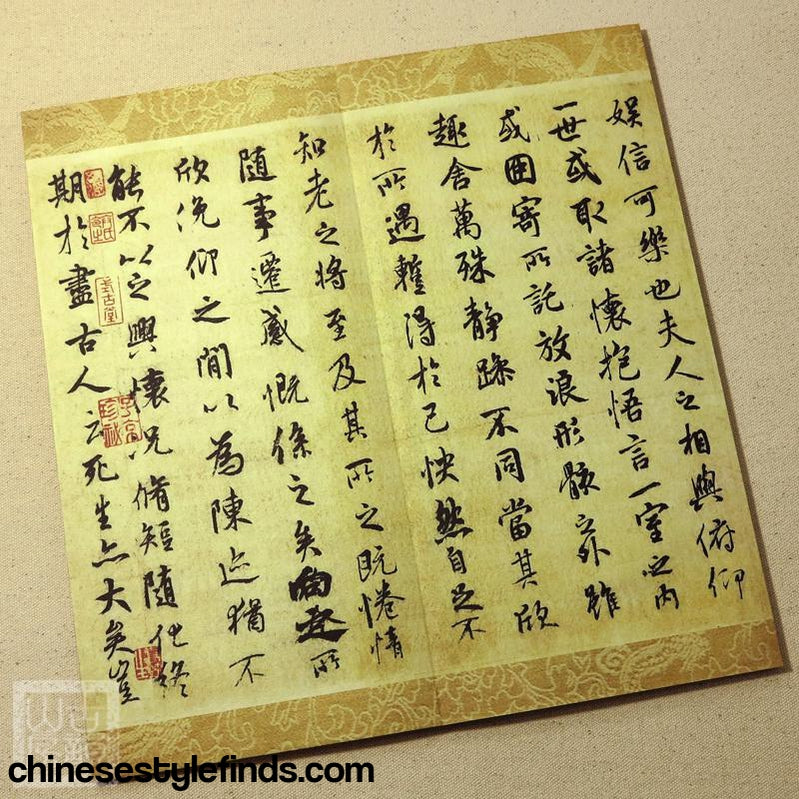 娱信可樂也夫人之相與俯仰
一世或取諸懷抱悟言一室之内
或因寄所託放浪形骸之外雖
趣舍萬殊静躁不同當其欣
於所遇蹔得於己怏然自足不
知老之將至及其所之既惓情
随事遷感慨係之矣向之所
欣俛仰之閒以為陳迹猶不
能不以之興懷况脩短随化終
期於盡古人云死生亦大矣豈
chinesestylefinds.com